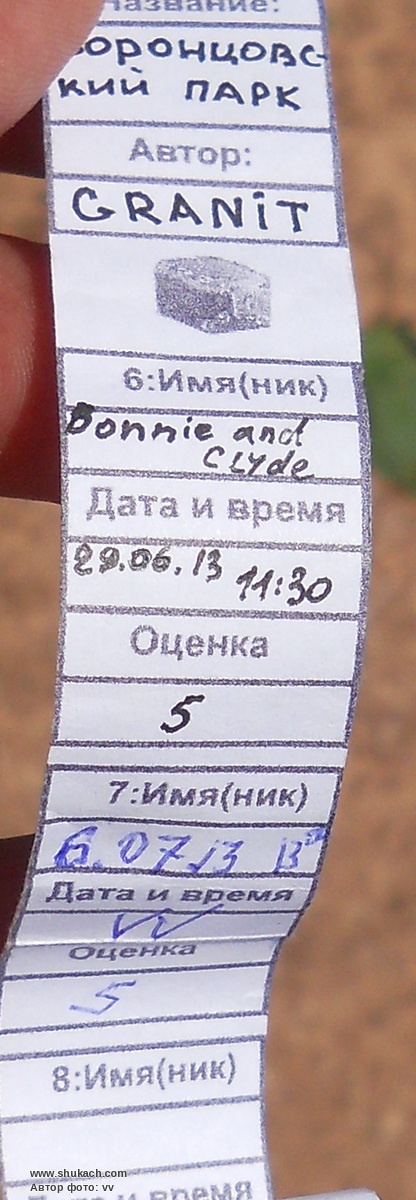 Название:
Воронцовс-
кий парк
Автор:
GRANiT
6:Имя(ник)
Bonnie and
Clyde
Дата и время
29.06.13 11:30
Оценка
5
7:Имя(ник)
6.07.13
Дата и время
vv
Оценка
5
8:Имя(ник)
Дата и время
www.shukach.com
Автор фото: vv